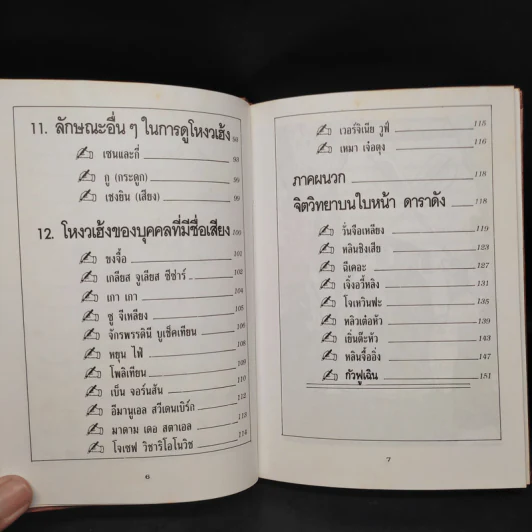 11. ลักษณะอื่น ๆ ในการดูโหงวเฮ้ง 93
เซนและกี่ 93
กู (กระดูก) 99
เซงยิน (เสียง) 99
12. โหงวเฮ้งของบุคคลที่มีชื่อเสียง 100
ขงจื้อ 101
เกลียส จูเลียส ซีซ่าร์ 102
เกา เกา 104
ซู จีเหลียง 105
จักรพรรดินี บูเช็คเทียน 106
หยุน ไฟ่ 108
โพลิเทียน 109
เบ็น จอร์นสัน 110
อีมานูเอล สวีเดนเบิร์ก 112
มาดาม เดอ สตาเอล 113
โจเซฟ วิซาริโอโนวิช 114
6
เวอร์จิเนีย วูฟ์ 115
เหมา เจ๋อตุง 116
ภาคผนวก
จิตวิทยาบนใบหน้า ดาราดัง 118
วั่นจือเหลียง 119
หลินชิงเสีย 123
ฉีเคอะ 127
เจิ้งอวี้หลิง 131
โจเหวินฟะ 135
หลิวเต๋อหัว 139
เยิ่นต๊ะหัว 143
หลินจื้ออิ่ง 147
กัวฟูเฉิน 151
7